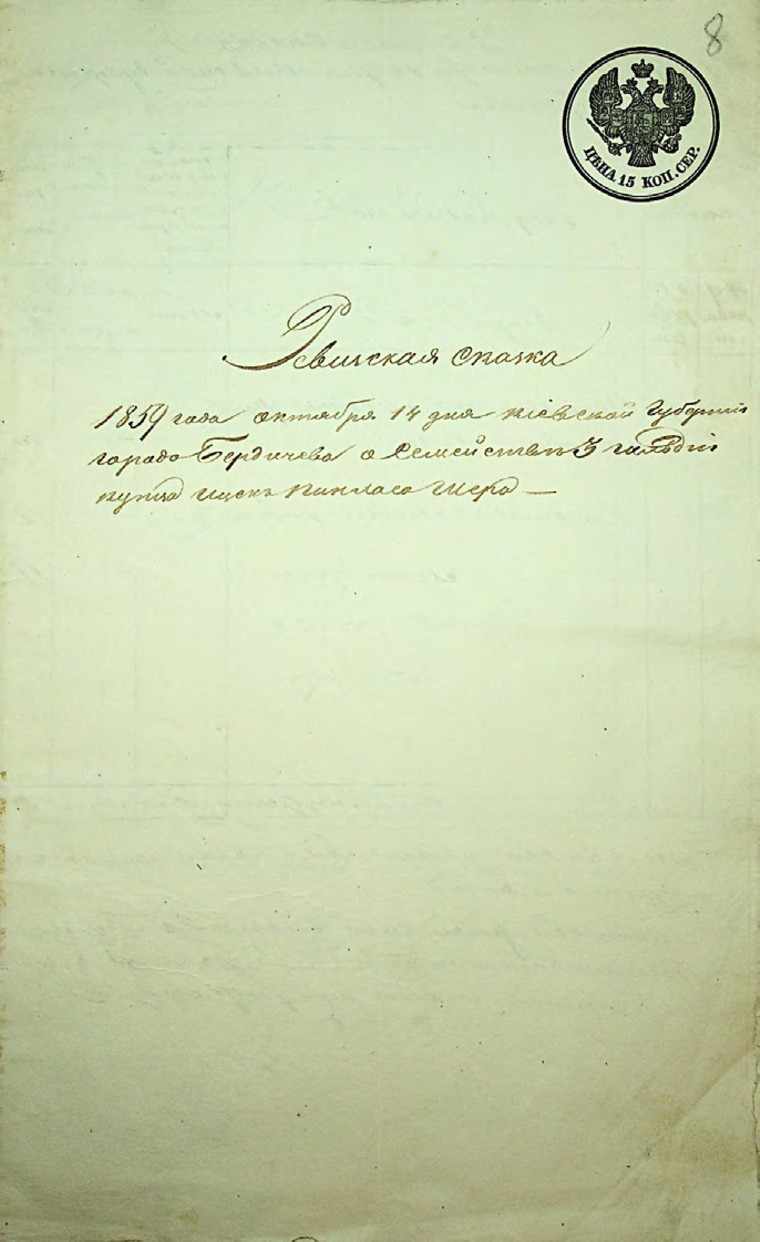 8
ЦѢНА 15 КОП. СЕР.
Ревизская сказка
1859 года октября 14 дня Кіевской Губерніи
города Бердичева о Семействѣ 3 гильдіи
купца Ицека Пинкаса Шера —